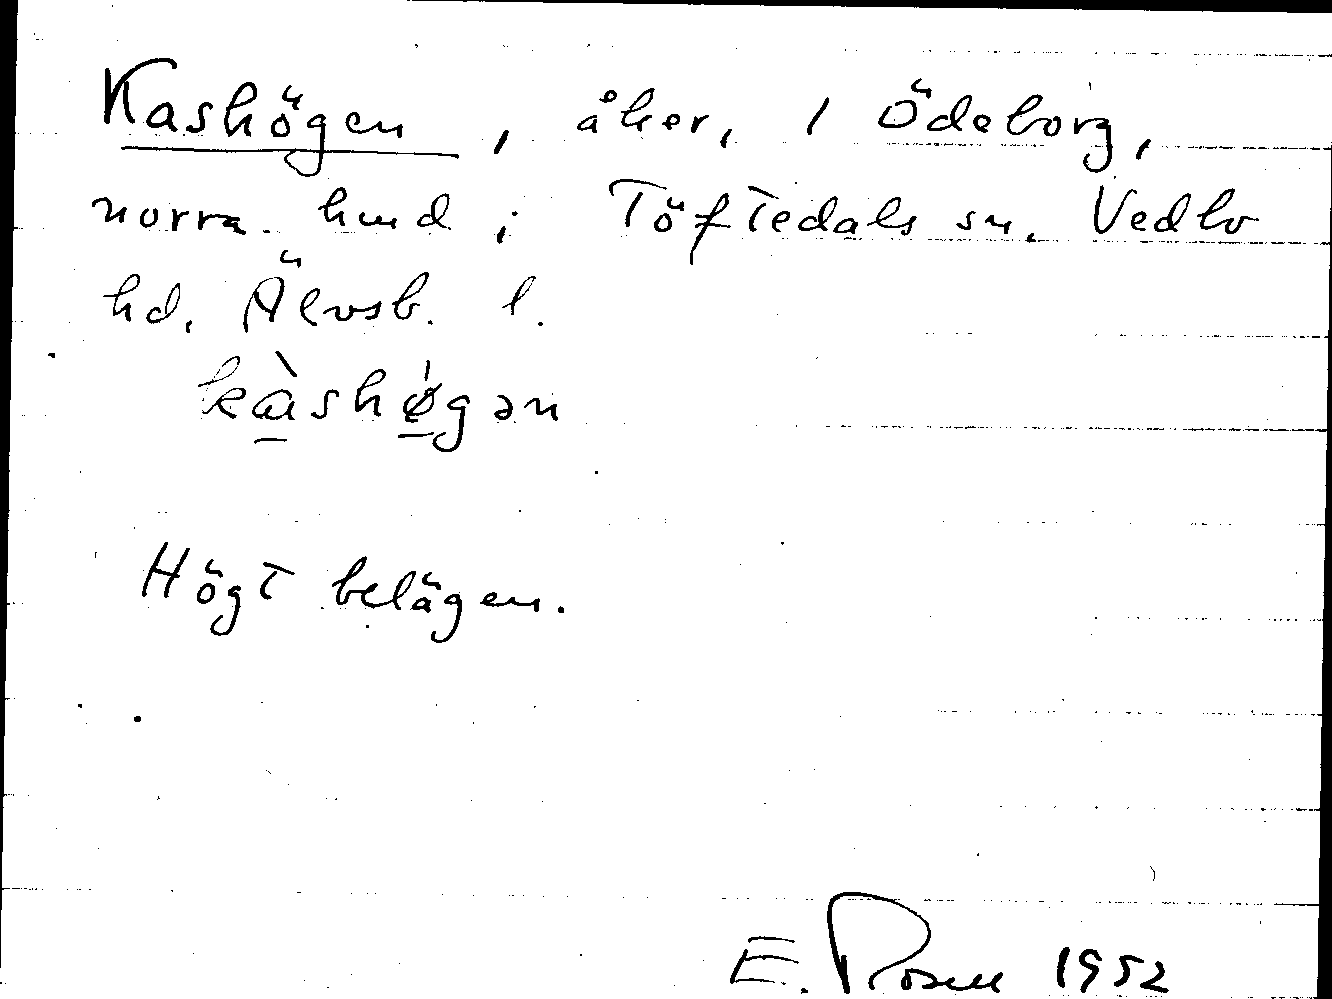 Kashögen, åker, 1 Ödeborg,
norra hmd i Töftedals sn. Vedbo
hd. Älvsb. l.
kàshø̀gən
Högt belägen.
E. Rosell 1952